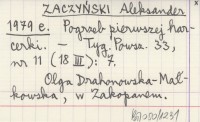 ZACZYŃSKI Aleksander
1979 e. Pogrzeb pierwszej har-
cerki. — Tyg. Powsz. 33,
nr 11 (18 III): 7.
Olga Drahonowska-Mał-
kowska, w Zakopanem.